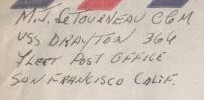 M.J. LETOURNEAU CGM
USS DRAYTON 366
FLEET POST OFFICE
SAN FRANCISCO CALIF.